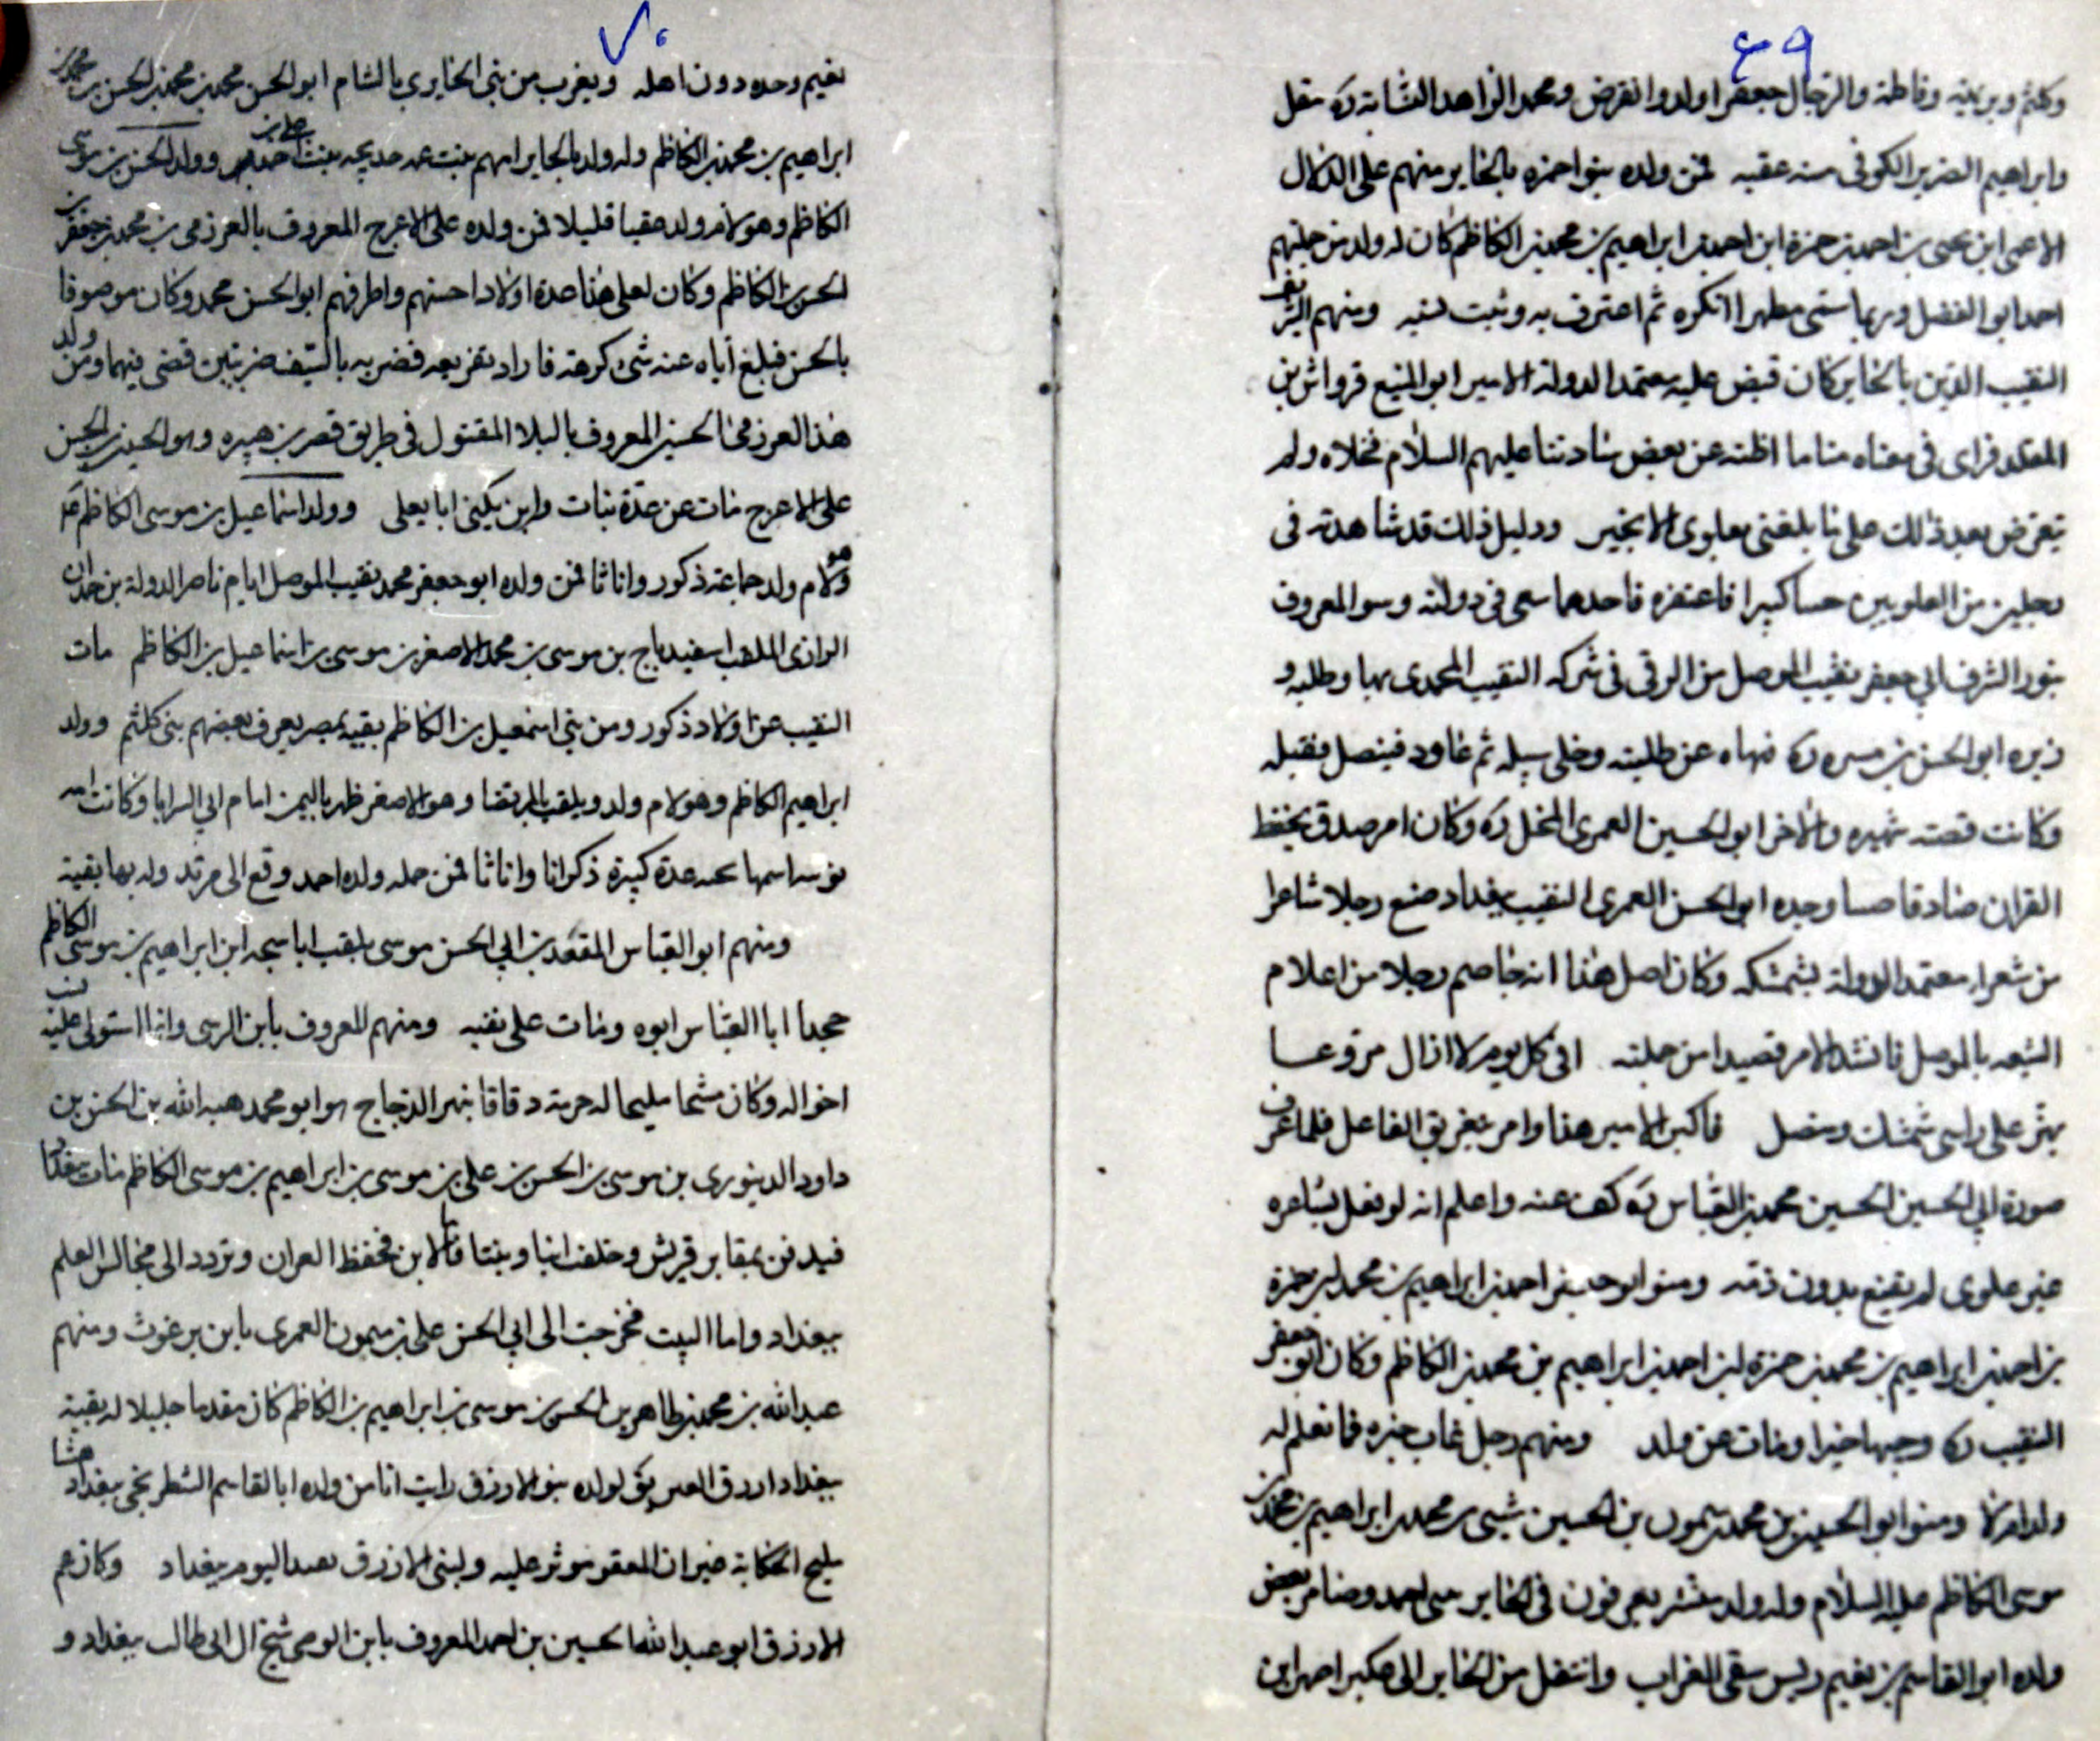 ٤٩
وكلثم وبريهة وفاطمة والرجال جعفرا اولد وانقرض ومحمد الزاهد النسابة ره مقل
وابراهيم الضرير الكوفى منه عقبه فمن ولده بنو احمزه بالحاير منهم على الدلال
الاعمى ابن يحيى بن احمد بن حمزة ابن احمد بن ابراهيم بن محمد بن الكاظم كان له ولد من جلتهم
احمد ابو الفضل وربما سمى مطهرا انكره ثم اعترف به وثبت نسبه ومنهم الشريف
النقيب الذين بالحاير كان قبض عليه معتمد الدولة الامير ابو المنيع قرواش بن
المقلد فراى فى معناه مناما اظنه عن بعض سادتنا عليهم السلام فخلاه ولم
يتعرض بعد ذلك على ما بلغنى بعلوى الا بخير ودليل ذلك قد شاهدته فى
رجلين من العلويين حبسا كبيرا فاعتفره فاحدهما سعى فى دولته وهو المعروف
بنور الشرف ابي جعفر نقيب الموصل من الرقى فى شركه النقيب المحمدى بها وطلبه و
زيره ابو الحسن بن مسره ره فنهاه عن طلبته وخلى سبيله ثم عاود فينصل فقبله
وكانت قصته شهيره والاخر ابو الحسين العمرى المخل ره وكان امر صدق يحفظ
القران صادقا وجده ابو الحسن العمرى النقيب ببغداد صنع رجلا شاعرا
من شعراء معتمد الدولة بشمشكه وكان اصل هذا انه خاصم رجلا من اعلام
الشيعه بالموصل فانشد الامر قصيدا من جملته افى كل يوم لا ازال مروعا
يهز على راسى شمشك ومنصل فاكبر الامير هذا وامر بتغريق الفاعل فلما عرف
صورة ابي الحسين الحسين محمد بن القباس ره كف عنه واعلم انه لو فعل بشاعره
غير علوى لم يقنع بدون دمه ومنهم ابو جعفر احمد بن ابراهيم بن محمد بن حمزة
بن احمد بن ابراهيم بن محمد بن حمزة ابن احمد بن ابراهيم بن محمد بن الكاظم وكان ابو جعفر
النقيب ره وجيها خيرا ومات عن ولد ومنهم رجل غاب خبره فما نعلم له
ولدا ام لا ومنهم ابو الحسين بن محمد ميمون بن الحسين شيتى بن محمد بن ابراهيم بن محمد بن
موسى الكاظم عليه السلام وله ولد منتشر يعرفون فى الحاير ببنى احمد وصاهر بعض
ولده ابو القاسم بن نعيم رئيس سقى الفرات وانتقل من الحاير الى عكبرا صهر ابن
٧٠
نعيم وحده دون اهله ويقرب من بنى الحايرى بالشام ابو الحسن محمد بن محمد بن الحسن بن محمد بن
ابراهيم بن محمد بن الكاظم وله ولد بالحاير امهم بنت عمه خديجه بنت احمد بن على وولد الحسن بن موسى
الكاظم وهو لام ولد عقبا قليلا فمن ولده على الاعرج المعروف بالعرزمى بن محمد بن جعفر بن
الحسن بن الكاظم وكان لعلى هذا عدة اولاد احسنهم واظرفهم ابو الحسن محمد وكان موصوفا
بالحسن فبلغ اباه عنه شئ كرهه فاراد تقريعه فضربه بالسيف ضربتين قضى فيهما ومن ولد
هذا العرزمى الحسين المعروف بالبلا المقتول فى طريق قصر بن هبيره وهو الحسين بن الحسن
على الاعرج مات عن عدة بنات وابن يكنى ابا يعلى وولد اسماعيل بن موسى الكاظم ع
وهو لام ولد جماعة ذكور واناثا فمن ولده ابو جعفر محمد نقيب الموصل ايام ناصر الدولة بن حمدان
الرازى الملقب اسفيدباج بن موسى بن محمد الاصغر بن موسى بن اسماعيل بن الكاظم مات
النقيب عن اولاد ذكور ومن بنى اسمعيل بن الكاظم بقية بمصر يعرف بعضهم ببنى كلثم وولد
ابراهيم الكاظم وهو لام ولد ويلقب بالمرتضا وهو الاصغر ظهر باليمن ايام ابي السرايا وكانت امه
نوبيه اسمها نجيه عدة كبيرة ذكرانا واناثا فمن جمله ولده احمد وقع الى مرتد وله بها بقية
ومنهم ابو القباس المقعد بن ابي الحسن موسى يلقب اباسبحه ابن ابراهيم بن موسى الكاظم
جحد ابا العباس ابوه ومات على نفيه ومنهم المعروف بابن الرسى وانما استولى عليه نسب
اخواله وكان شيخا مليحا له حرمة دقاقا بنهر الدجاج هو ابو محمد هبه الله بن الحسن بن
داود الدينورى بن موسى بن الحسن بن على بن موسى بن ابراهيم بن موسى الكاظم مات ببغداد
فيدفن بمقابر قريش وخلف ابنا وبنتا فاما الابن فحفظ القران وتردد الى مجالس العلم
ببغداد واما البيت فخرجت الى ابي الحسن على بن ميمون العمرى بابن برغوث ومنهم
عبد الله بن محمد بن طاهر بن الحسين بن موسى بن ابراهيم بن الكاظم كان مقدما جليلا له بقية
ببغداد ازرق العين يق لولده بنو الازرق رايت انا من ولده ابا القاسم الشطرنجى ببغداد شابا
مليح الحكاية غير ان الفقر موثر عليه ولبنى الازرق بقية اليوم ببغداد وكان عم
الازرق ابو عبد الله الحسين بن احمد المعروف بابن الوصى شيخ ال ابى طالب ببغداد و